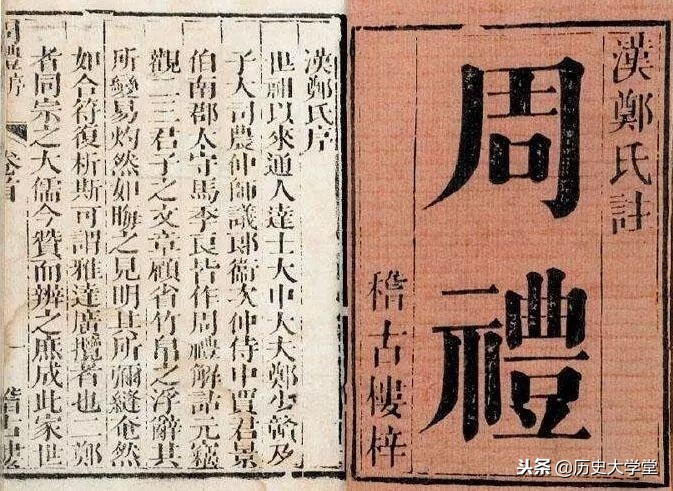 漢鄭氏註
周禮
稽古樓梓
漢鄭氏序
世祖以來通人達士大中大夫鄭少贛及
子大司農仲師議郎衛次仲侍中賈君景
伯南郡太守馬季良皆作周禮解詁元竊
觀二三君子之文章顧省竹帛之浮辭其
所變易灼然如晦之見明其所彌縫奄然
如合符復析斯可謂雅達廣攬者也二鄭
者同宗之大儒今贊而辨之庶成此家世
周禮序 卷首 一 稽古樓
头条 @历史大学堂